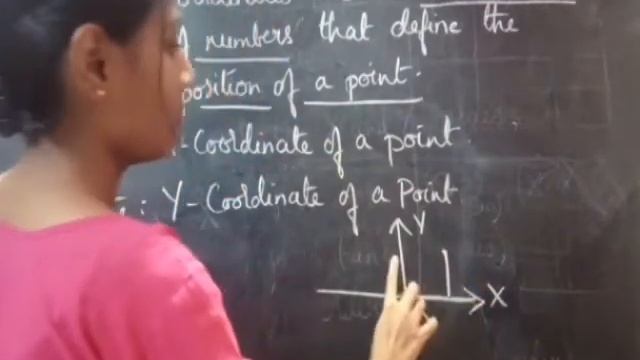 numbers that define the
position of a point.
-Coordinate of a point.
: Y-Coordinate of a Point
Y
X